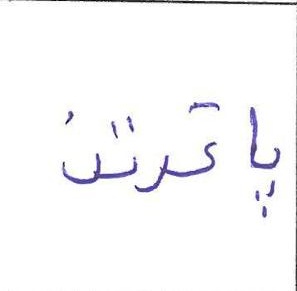 پاترتن